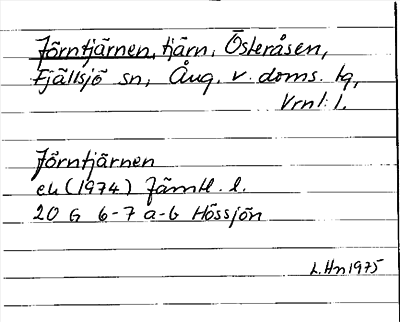 Jörntjärnen, tjärn, Österåsen,
Fjällsjö sn, Ång. v. doms. tg,
Vrnl. l.
Jörntjärnen
ek (1974) Jämtl. l.
20 G 6-7 a-b Hössjön
L. Hn 1975